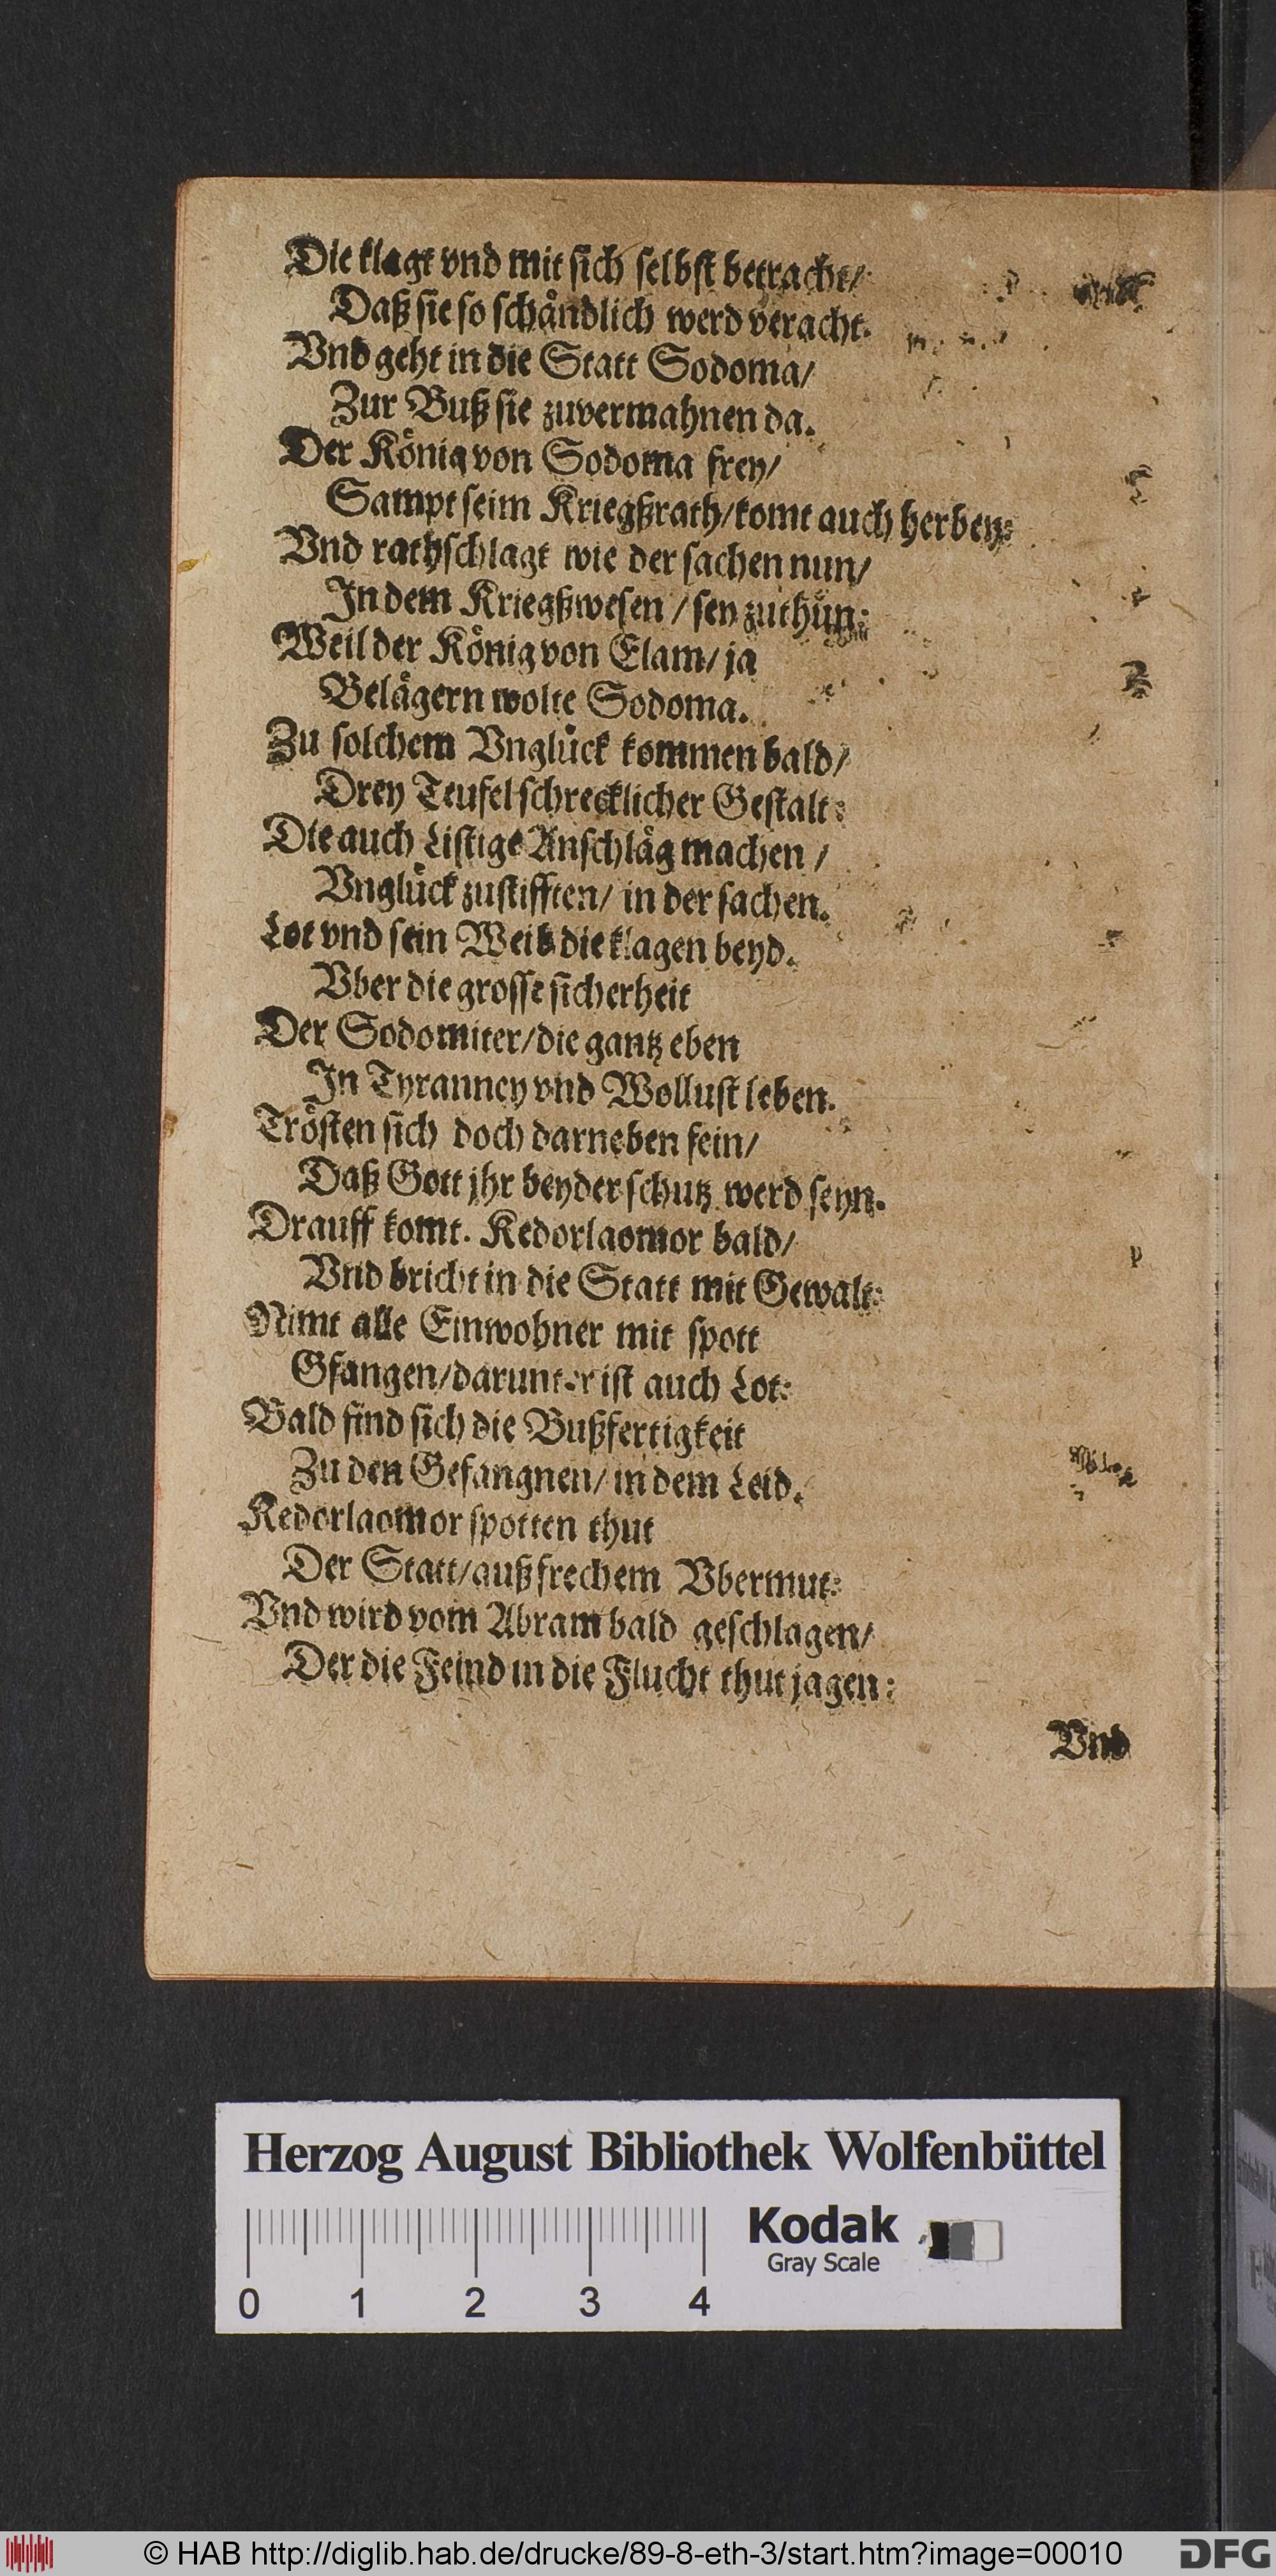 Die klagt vnd mit sich selbst betracht/
Daß sie so schändlich werd veracht.
Vnd geht in die Statt Sodoma/
Zur Buß sie zuvermahnen da.
Der König von Sodoma frey/
Sampt seim Kriegßrath/komt auch herbey:
Vnd rathschlagt wie der sachen nun/
In dem Kriegßwesen / sey zuthun:
Weil der König von Elam/ ja
Belägern wolte Sodoma.
Zu solchem Vnglück kommen bald/
Drey Teufel schrecklicher Gestalt:
Die auch Listige Anschläg machen /
Vnglück zustifften/ in der sachen.
Lot vnd sein Weib die klagen beyd.
Vber die grosse sicherheit
Der Sodomiter/die gantz eben
In Tyranney vnd Wollust leben.
Trösten sich doch darneben fein/
Daß Gott jhr beyder schutz werd seyn.
Drauff komt. Kedorlaomor bald/
Vnd bricht in die Statt mit Gewalt:
Nimt alle Einwohner mit spott
Gfangen/darunter ist auch Lot:
Bald find sich die Bußfertigkeit
Zu den Gefangnen/ in dem Leid.
Kedorlaomor spotten thut
Der Statt/auß frechem Vbermut:
Vnd wird vom Abram bald geschlagen/
Der die Feind in die Flucht thut jagen:
Vnd
Herzog August Bibliothek Wolfenbüttel
Kodak
Gray Scale
0 1 2 3 4
© HAB http://diglib.hab.de/drucke/89-8-eth-3/start.htm?image=00010
DFG